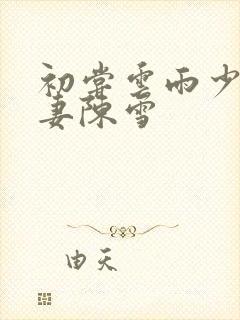 初尝云雨少
妻陈雪
由天